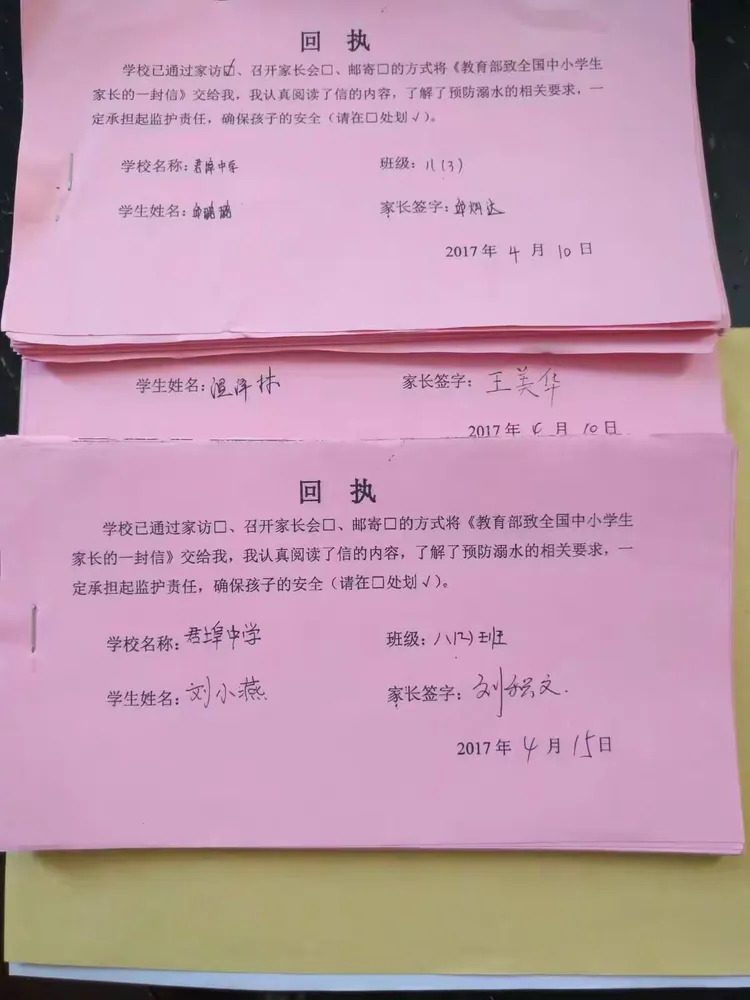 回 执
学校已通过家访☑、召开家长会□、邮寄□的方式将《教育部致全国中小学生
家长的一封信》交给我，我认真阅读了信的内容，了解了预防溺水的相关要求，一
定承担起监护责任，确保孩子的安全（请在□处划√）。
学校名称：君埠中学 班级：八(3)
学生姓名：邱 家长签字：邱炳达
2017 年 4 月 10 日
学生姓名：温泽林 家长签字：王美华
2017 年 4 月 10 日
回 执
学校已通过家访□、召开家长会□、邮寄□的方式将《教育部致全国中小学生
家长的一封信》交给我，我认真阅读了信的内容，了解了预防溺水的相关要求，一
定承担起监护责任，确保孩子的安全（请在□处划√）。
学校名称：君埠中学 班级：八(2)班
学生姓名：刘小燕 家长签字：刘积文.
2017 年 4 月 15 日